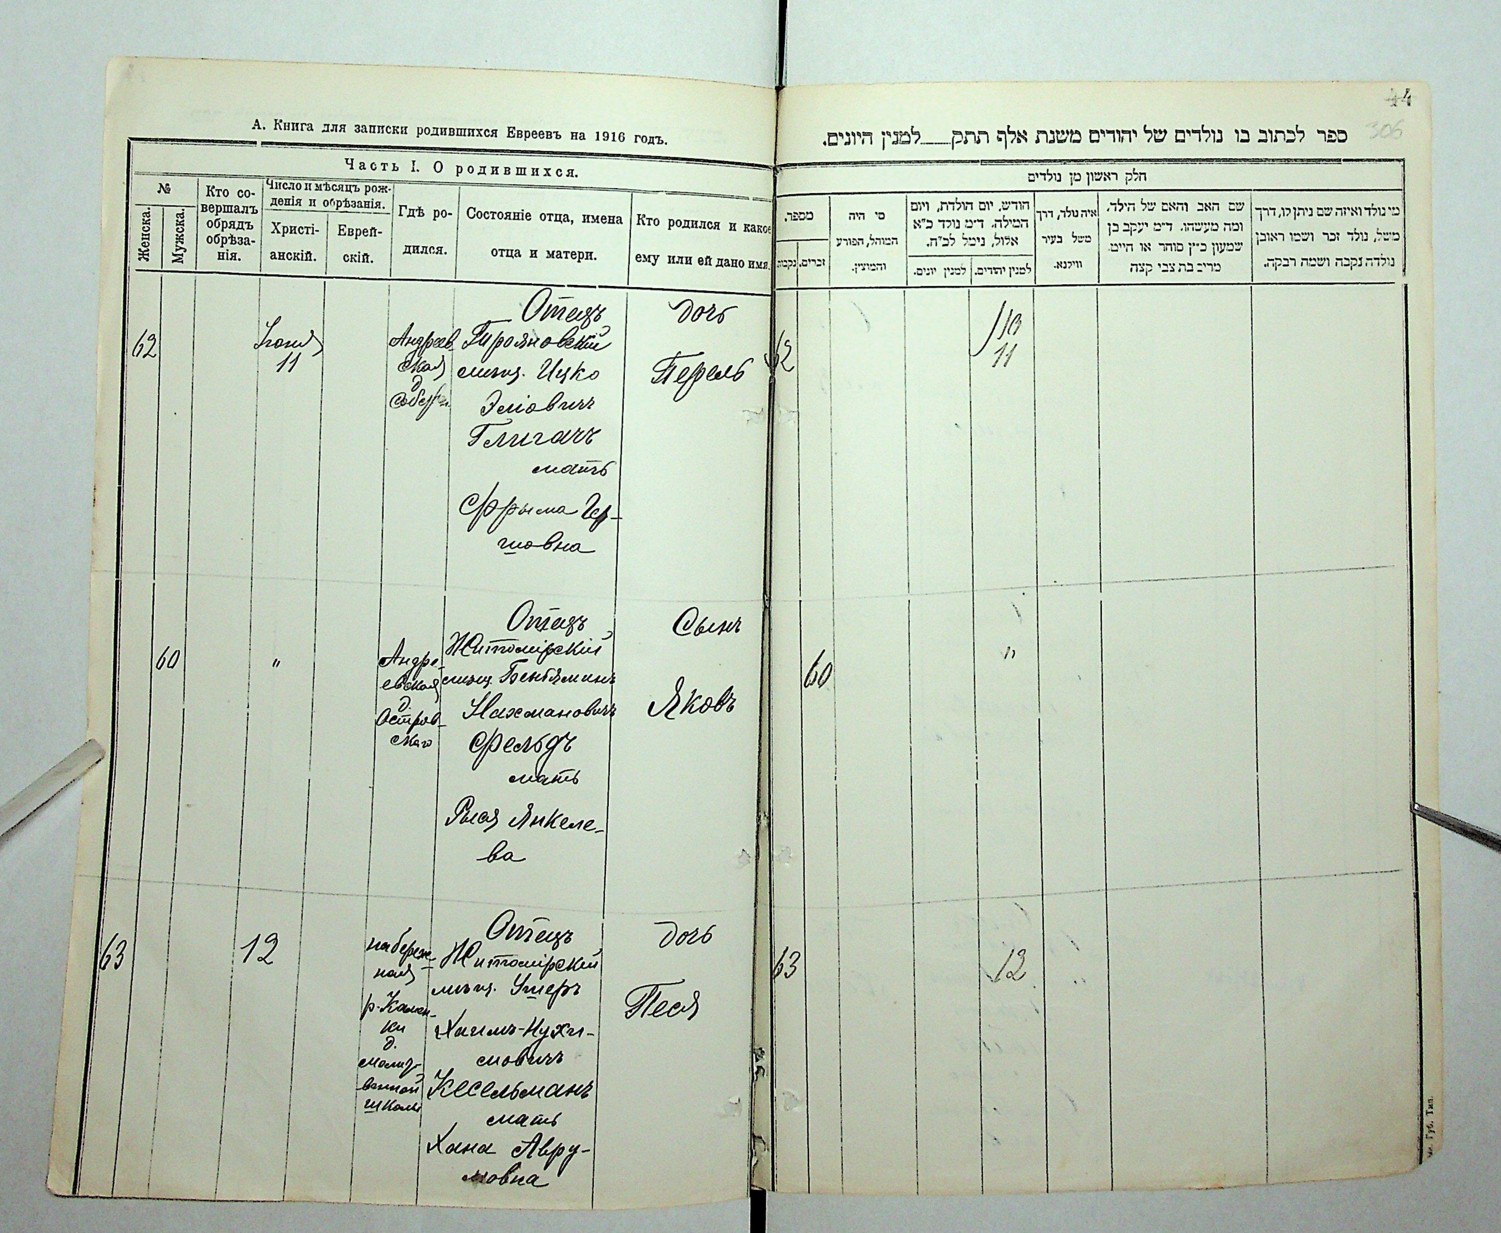 А. Книга для записки родившихся Евреевъ на 1916 годъ.
Часть I. О родившихся.
№
Женска.
Мужска.
Кто со-
вершалъ
обрядъ
обрѣза-
нія.
Число и мѣсяцъ рож-
денія и обрѣзанія.
Христі-
анскій.
Еврей-
скій.
Гдѣ ро-
дился.
Состояніе отца, имена
отца и матери.
Кто родился и какое
ему или ей дано имя.
62
Іюня
11
Андреев-
ская
д.
Отецъ
Трояновскій
мѣщ. Ицко
Эліовичъ
Глигачъ
мать
Фрыма Гер-
шовна
дочь
Перель
60
"
Андре-
евская
д.
Остров-
скаго
Отецъ
Житомірскій
мѣщ. Беньяминъ
Нахмановичъ
Фельдъ
мать
Рыся Янкеле-
ва
Сынъ
Яковъ
63
12
набереж-
ная
р. Камен-
ки
д.
молит-
венной
школы
Отецъ
Житомірскій
мѣщ. Ушеръ
Хаимъ-Нухи-
мовичъ
Кесельманъ
мать
Хана Авру-
мовна
дочь
Песя
44
306
ספר לכתוב בו נולדים של יהודים משנת אלף תתק___למנין היונים.
חלק ראשון מן נולדים
מספר,
זכרים.
נקבות
מי היה
המוהל, הפורע
והמוצץ.
חודש, יום הולדת, ויום
המילה. ד״מ נולד כ״א
אלול, נימל לכ״ח.
למנין יהודים.
למנין יונים.
איה נולד, דרך
משל בעיר
ווילנא.
שם האב והאם של הילד,
ומה מעשהו. ד״מ יעקב בן
שמעון כ״ץ סוחר או חייט
מרים בת צבי קצה
מי נולד ואיזה שם ניתן לו, דרך
משל, נולד זכר ושמו ראובן
נולדה נקבה ושמה רבקה.
62
11
60
"
63
12